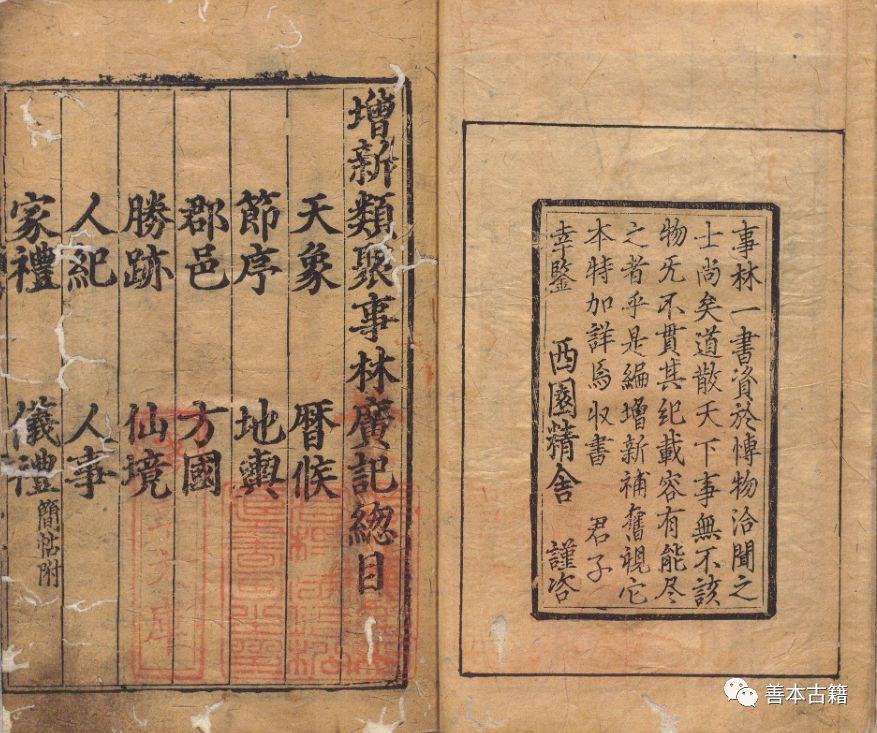 事林一書資於愽物洽聞之
士尚矣道散天下事無不該
物旡不貫其紀載容有能尽
之者乎是編增新補舊視它
本特加詳焉収書 君子
幸鑒 西園精舍 謹咨
增新類聚事林廣記緫目
天象 暦候
節序 地輿
郡邑 方國
勝跡 仙境
人紀 人事
家禮 儀禮 簡帖附
善本古籍